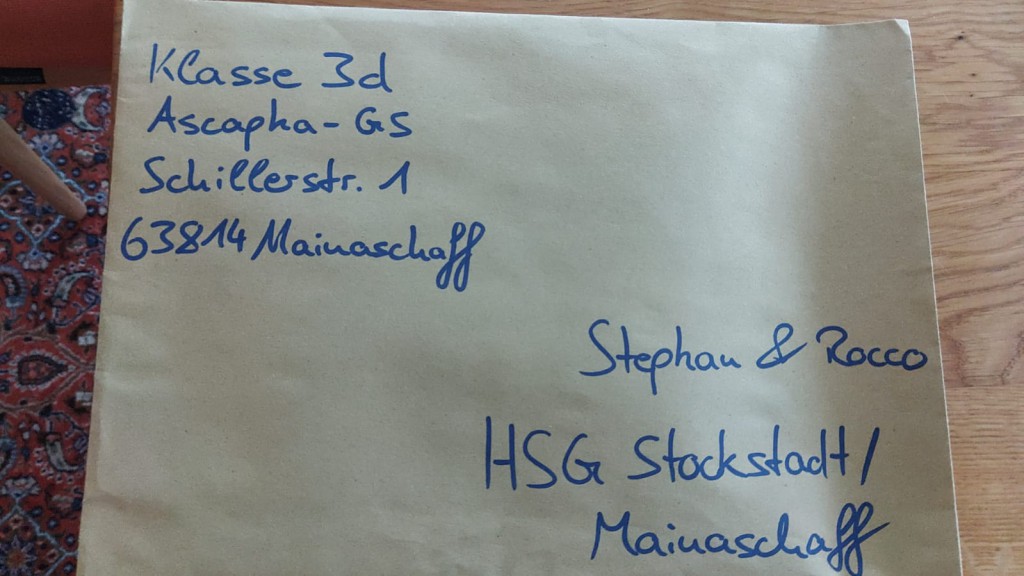 Klasse 3d
Ascapha-GS
Schillerstr. 1
63814 Mainaschaff
Stephan & Rocco
HSG Stockstadt/
Mainaschaff